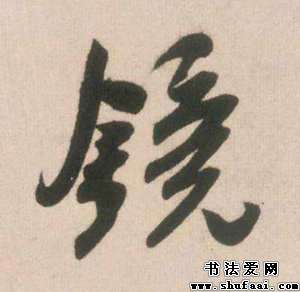 镜
书法爱网
www.shufaai.com